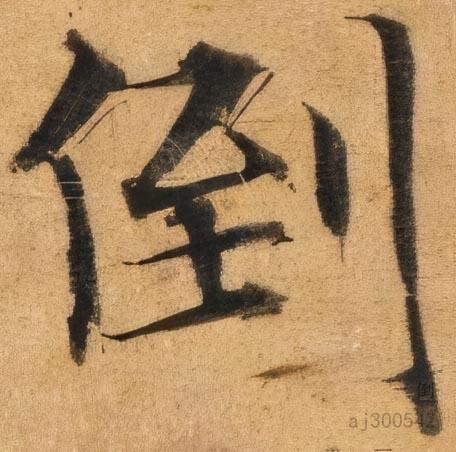 倒
倒
aj300542